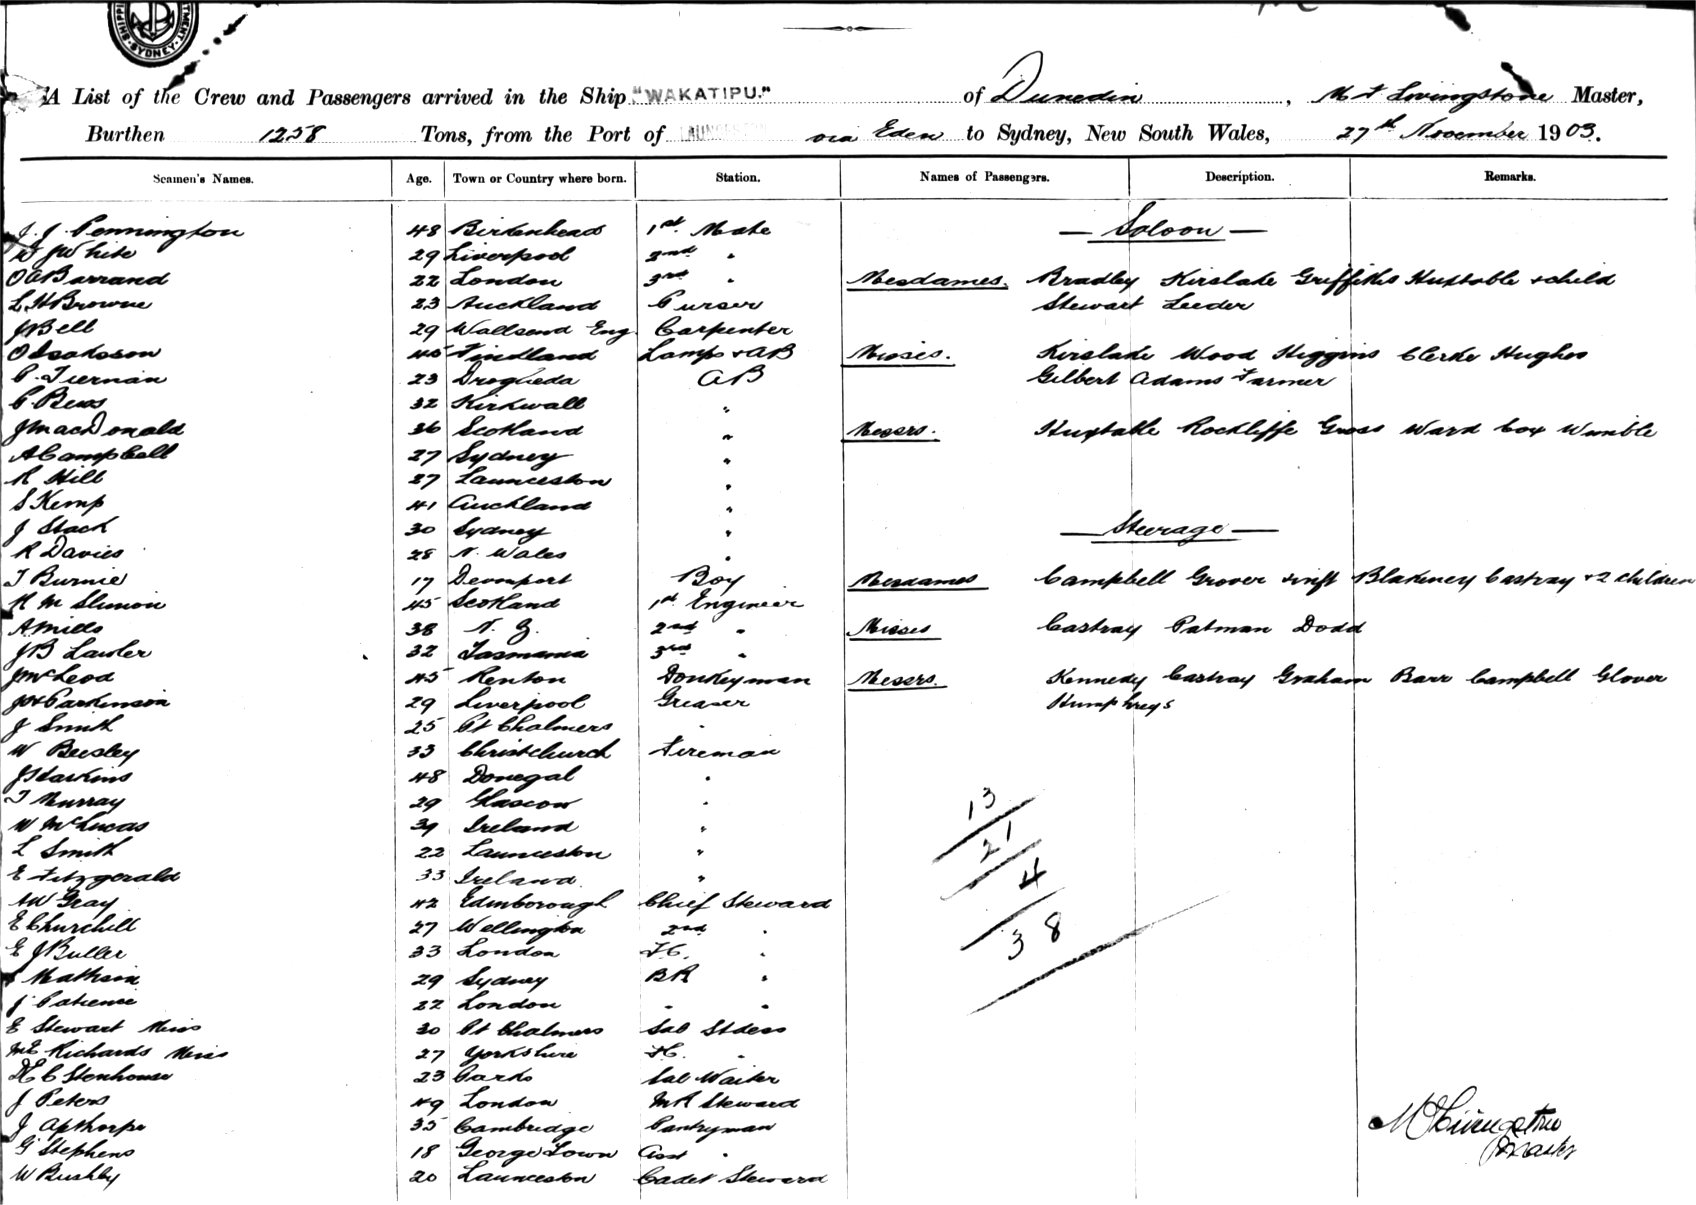 SHIPPING DEPARTMENT. SYDNEY.
A List of the Crew and Passengers arrived in the Ship "WAKATIPU." of Dunedin, M Livingstone Master,
Burthen 1258 Tons, from the Port of LAUNCESTON via Eden to Sydney, New South Wales, 27th November 1903.
Seamen's Names. Age. Town or Country where born. Station. Names of Passengers. Description. Remarks.
J. J. Pennington 48 Birkenhead 1st. Mate — Saloon —
White 29 Liverpool 2nd "
O Barrand 22 London 3rd " Mesdames. Bradley Kirslake Griffiths Huxtable + child
L H Browne 23 Auckland Purser Stewart Leeder
J Bell 29 Wallsend Eng Carpenter
O Isaksson 45 Findland Lamps + AB Misses. Kirslake Wood Higgins Clerke Hughes
P. Tiernan 23 Drogheda AB Gilbert Adams Farmer
C Bews 32 Kirkwall "
J MacDonald 36 Scotland " Messrs. Huxtable Rockliffe Gross Ward Cox Wimble
A Campbell 27 Sydney "
R Hill 27 Launceston "
S Kemp 41 Auckland "
J Stack 30 Sydney " — Steerage —
R Davies 28 N. Wales "
T Burnie 17 Devonport Boy Mesdames Campbell Grover Swift Blakeney Castray + 2 children
R M Slimon 45 Scotland 1st Engineer
A Mills 38 N. Z. 2nd " Misses Castray Patman Dodd
J B Lawler 32 Tasmania 3rd "
J McLeod 45 Renton Donkeyman Messrs. Kennedy Castray Graham Barr Campbell Glover
Parkinson 29 Liverpool Greaser Humphreys
J Smith 25 Pt Chalmers "
W Beesley 33 Christchurch Fireman
J Harkins 48 Donegal "
T Murray 29 Glascow " 13
W McLucas 39 Ireland " 21
L Smith 22 Launceston "
E Fitzgerald 33 Ireland " 4
Gray 42 Edinborough Chief Steward
E Churchill 27 Wellington 2nd " 38
E J Buller 33 London F.C. "
Matheson 29 Sydney BR "
J Patience 22 London " "
E Stewart Miss 30 Pt Chalmers Sal Stdess
M E Richards Miss 27 Yorkshire F.C. "
C Stenhouse 23 Sal Waiter
J Peters 49 London MR Steward
J Apthorpe 35 Cambridge Pantryman M Livingstone
G Stephens 18 George Town Asst " Master
W Bushby 20 Launceston Cadet Steward